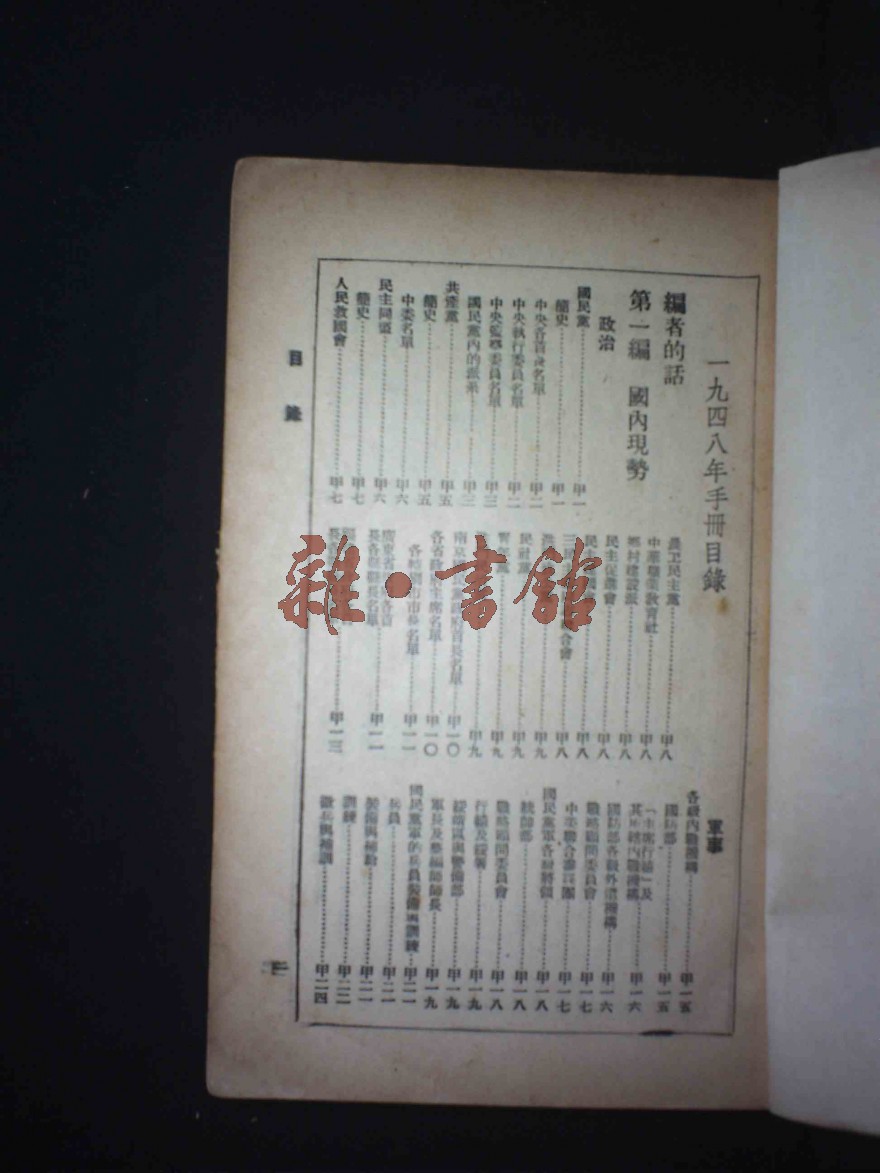 一九四八年手冊目錄
編者的話
第一編 國內現勢
政治
國民黨……甲一
簡史……甲一
中央各首長名單……甲二
中央執行委員名單……甲二
中央監察委員名單……甲三
國民黨內的派系……甲三
共產黨……甲五
簡史……甲五
中委名單……甲六
民主同盟……甲六
簡史……甲七
人民救國會……甲七
農工民主黨……甲八
中華職業教育社……甲八
鄉村建設派……甲八
民主促進會……甲八
民主……甲八
三民……聯合會……甲八
甲九
民社黨……甲九
青年黨……甲九
甲九
南京國民黨政府首長名單……甲一〇
各省政府主席名單……甲一〇
各院轄市市長名單……甲一一
廣東省……各首長各縣縣長名單……甲一一
甲一三
軍事
各級內戰機構……甲一五
國防部……甲一五
「主席行轅」及其所轄內戰機構……甲一六
國防部各戰外遣機構……甲一六
戰略顧問委員會……甲一七
中美聯合參謀團……甲一七
國民黨軍各級將領……甲一八
統帥部……甲一八
戰略顧問委員會……甲一八
行轅及綏署……甲一九
綏靖區與警備部……甲一九
軍長及整編師師長……甲一九
國民黨軍的兵員裝備與訓練……甲二一
兵員……甲二一
裝備與補給……甲二一
訓練……甲二二
徵兵與補訓……甲二四
目錄
一
雜·書館